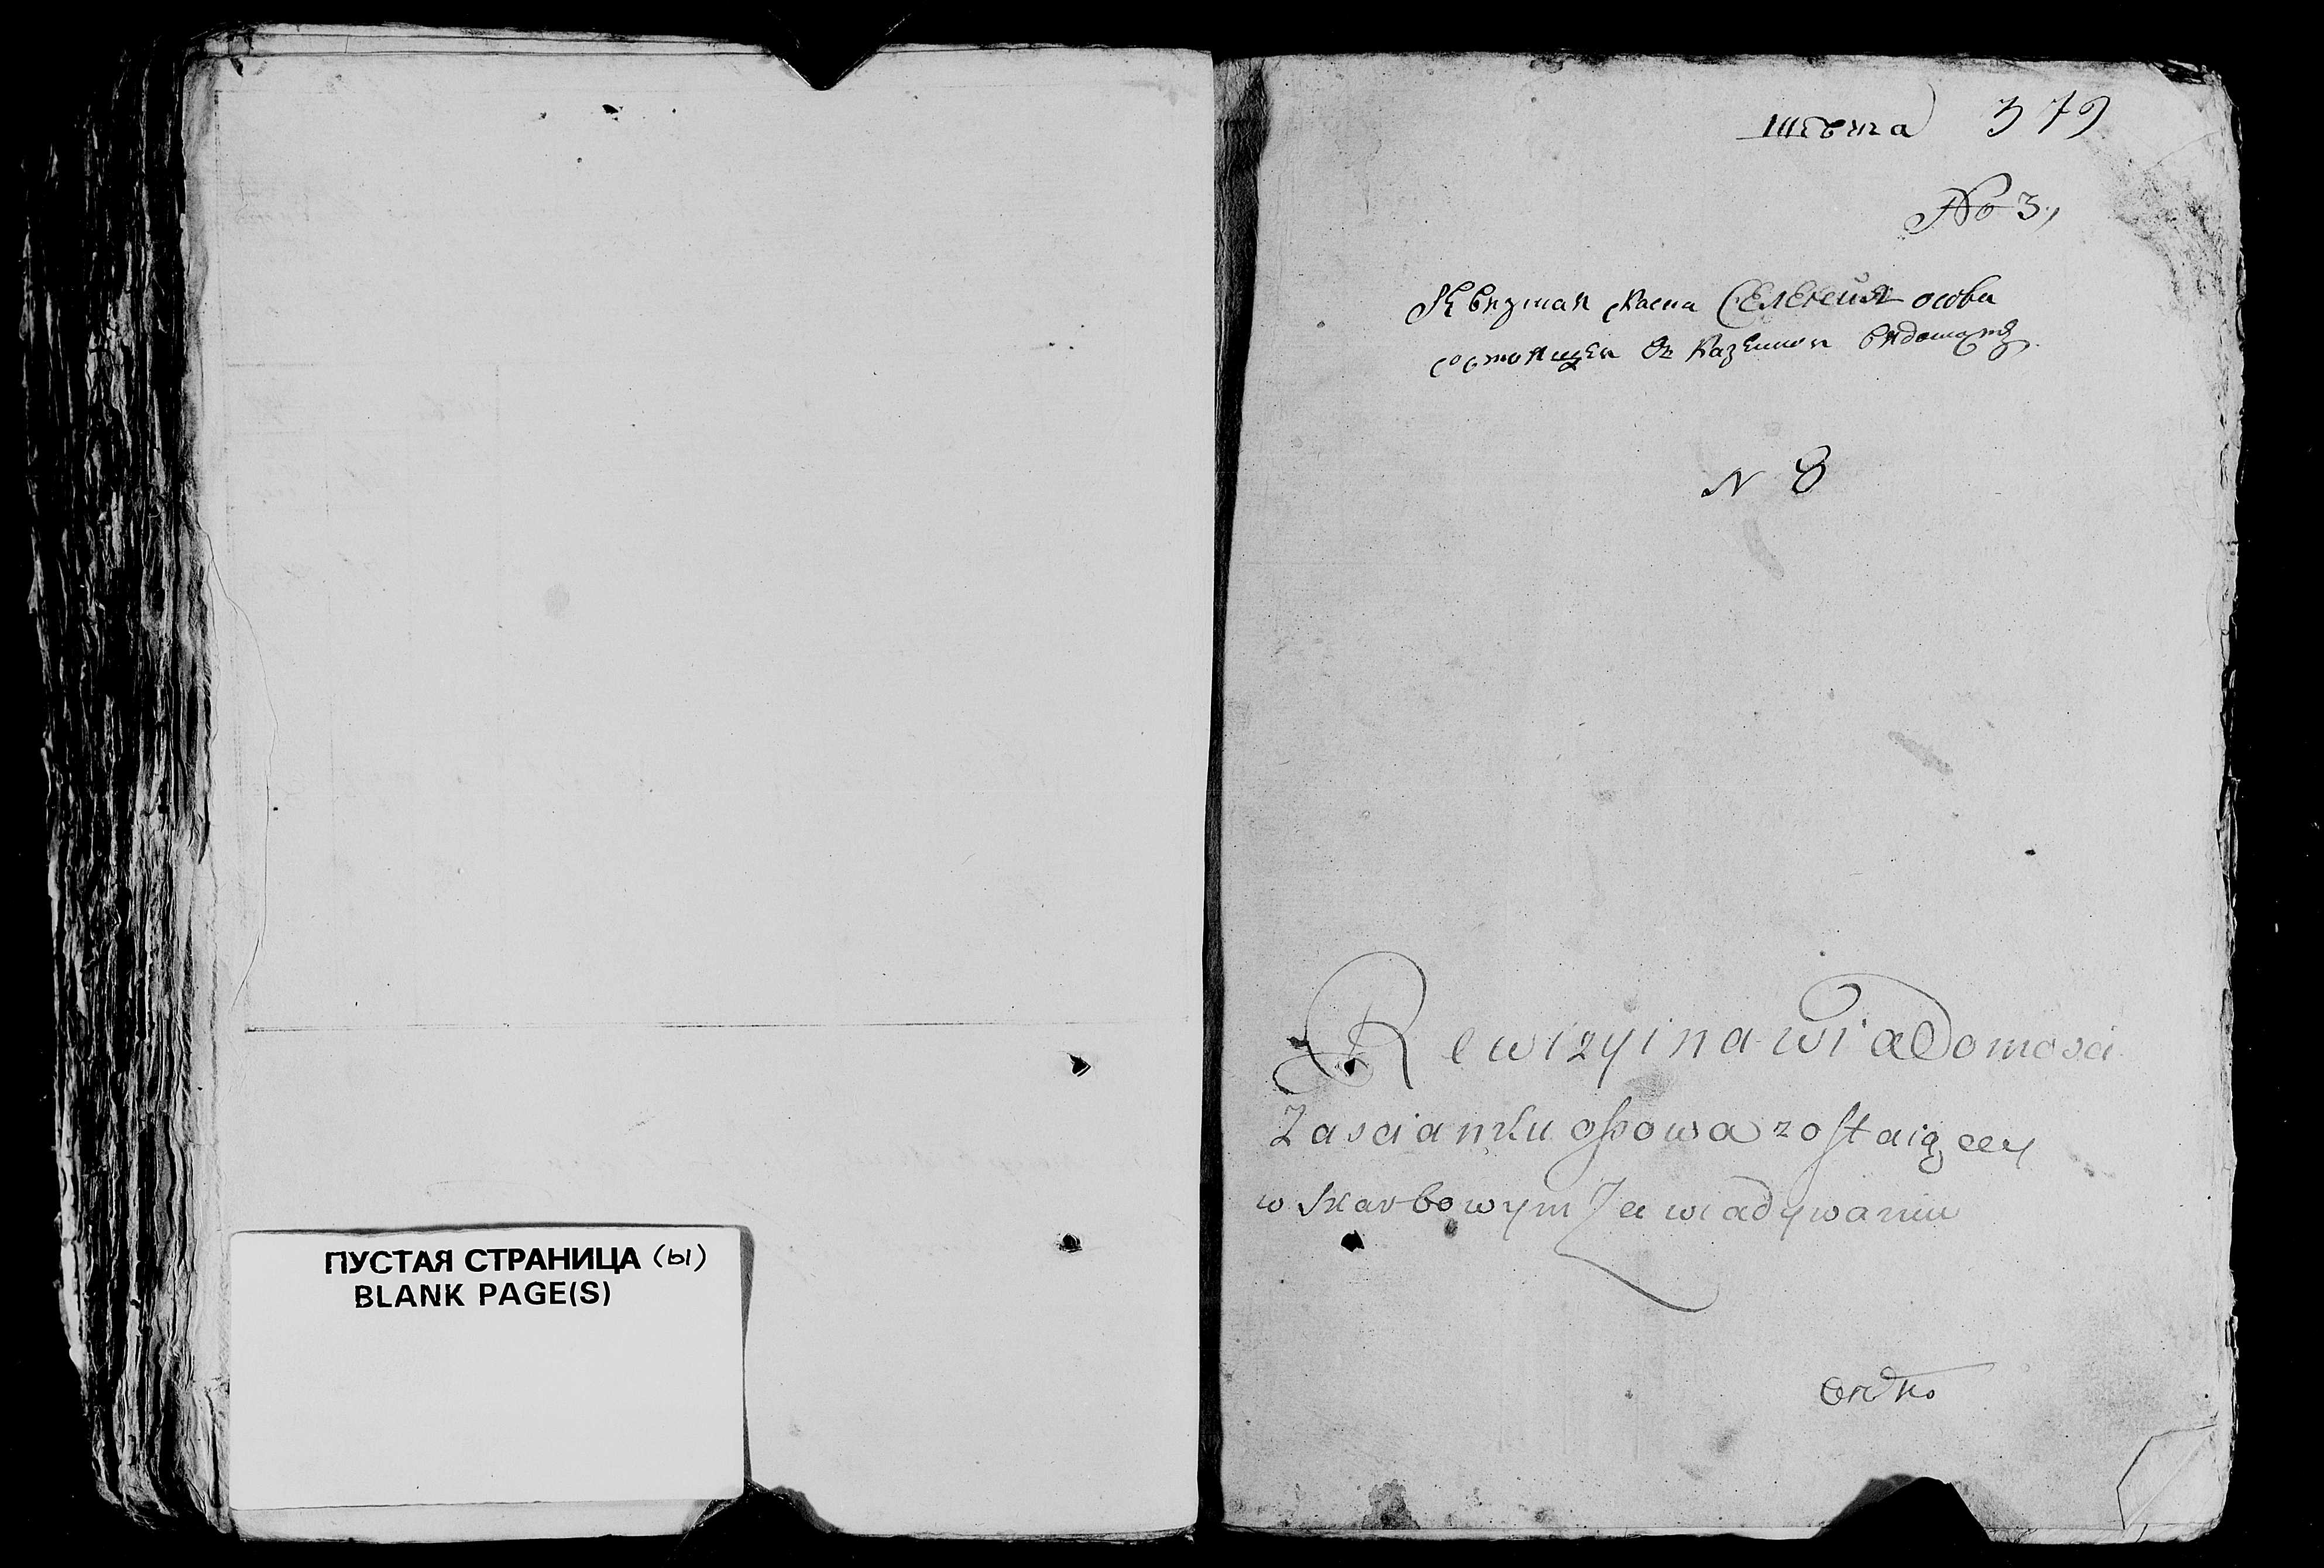 ПУСТАЯ СТРАНИЦА (ы)
BLANK PAGE(S)
379
No 3,
Ревизная скаска Селения осовы
состоящеи въ казеннои видомости
N 8
Rewizyina wiadomosci
Zascianku ossowa zostaiącey
w Skarbowym Zawiadywaniu